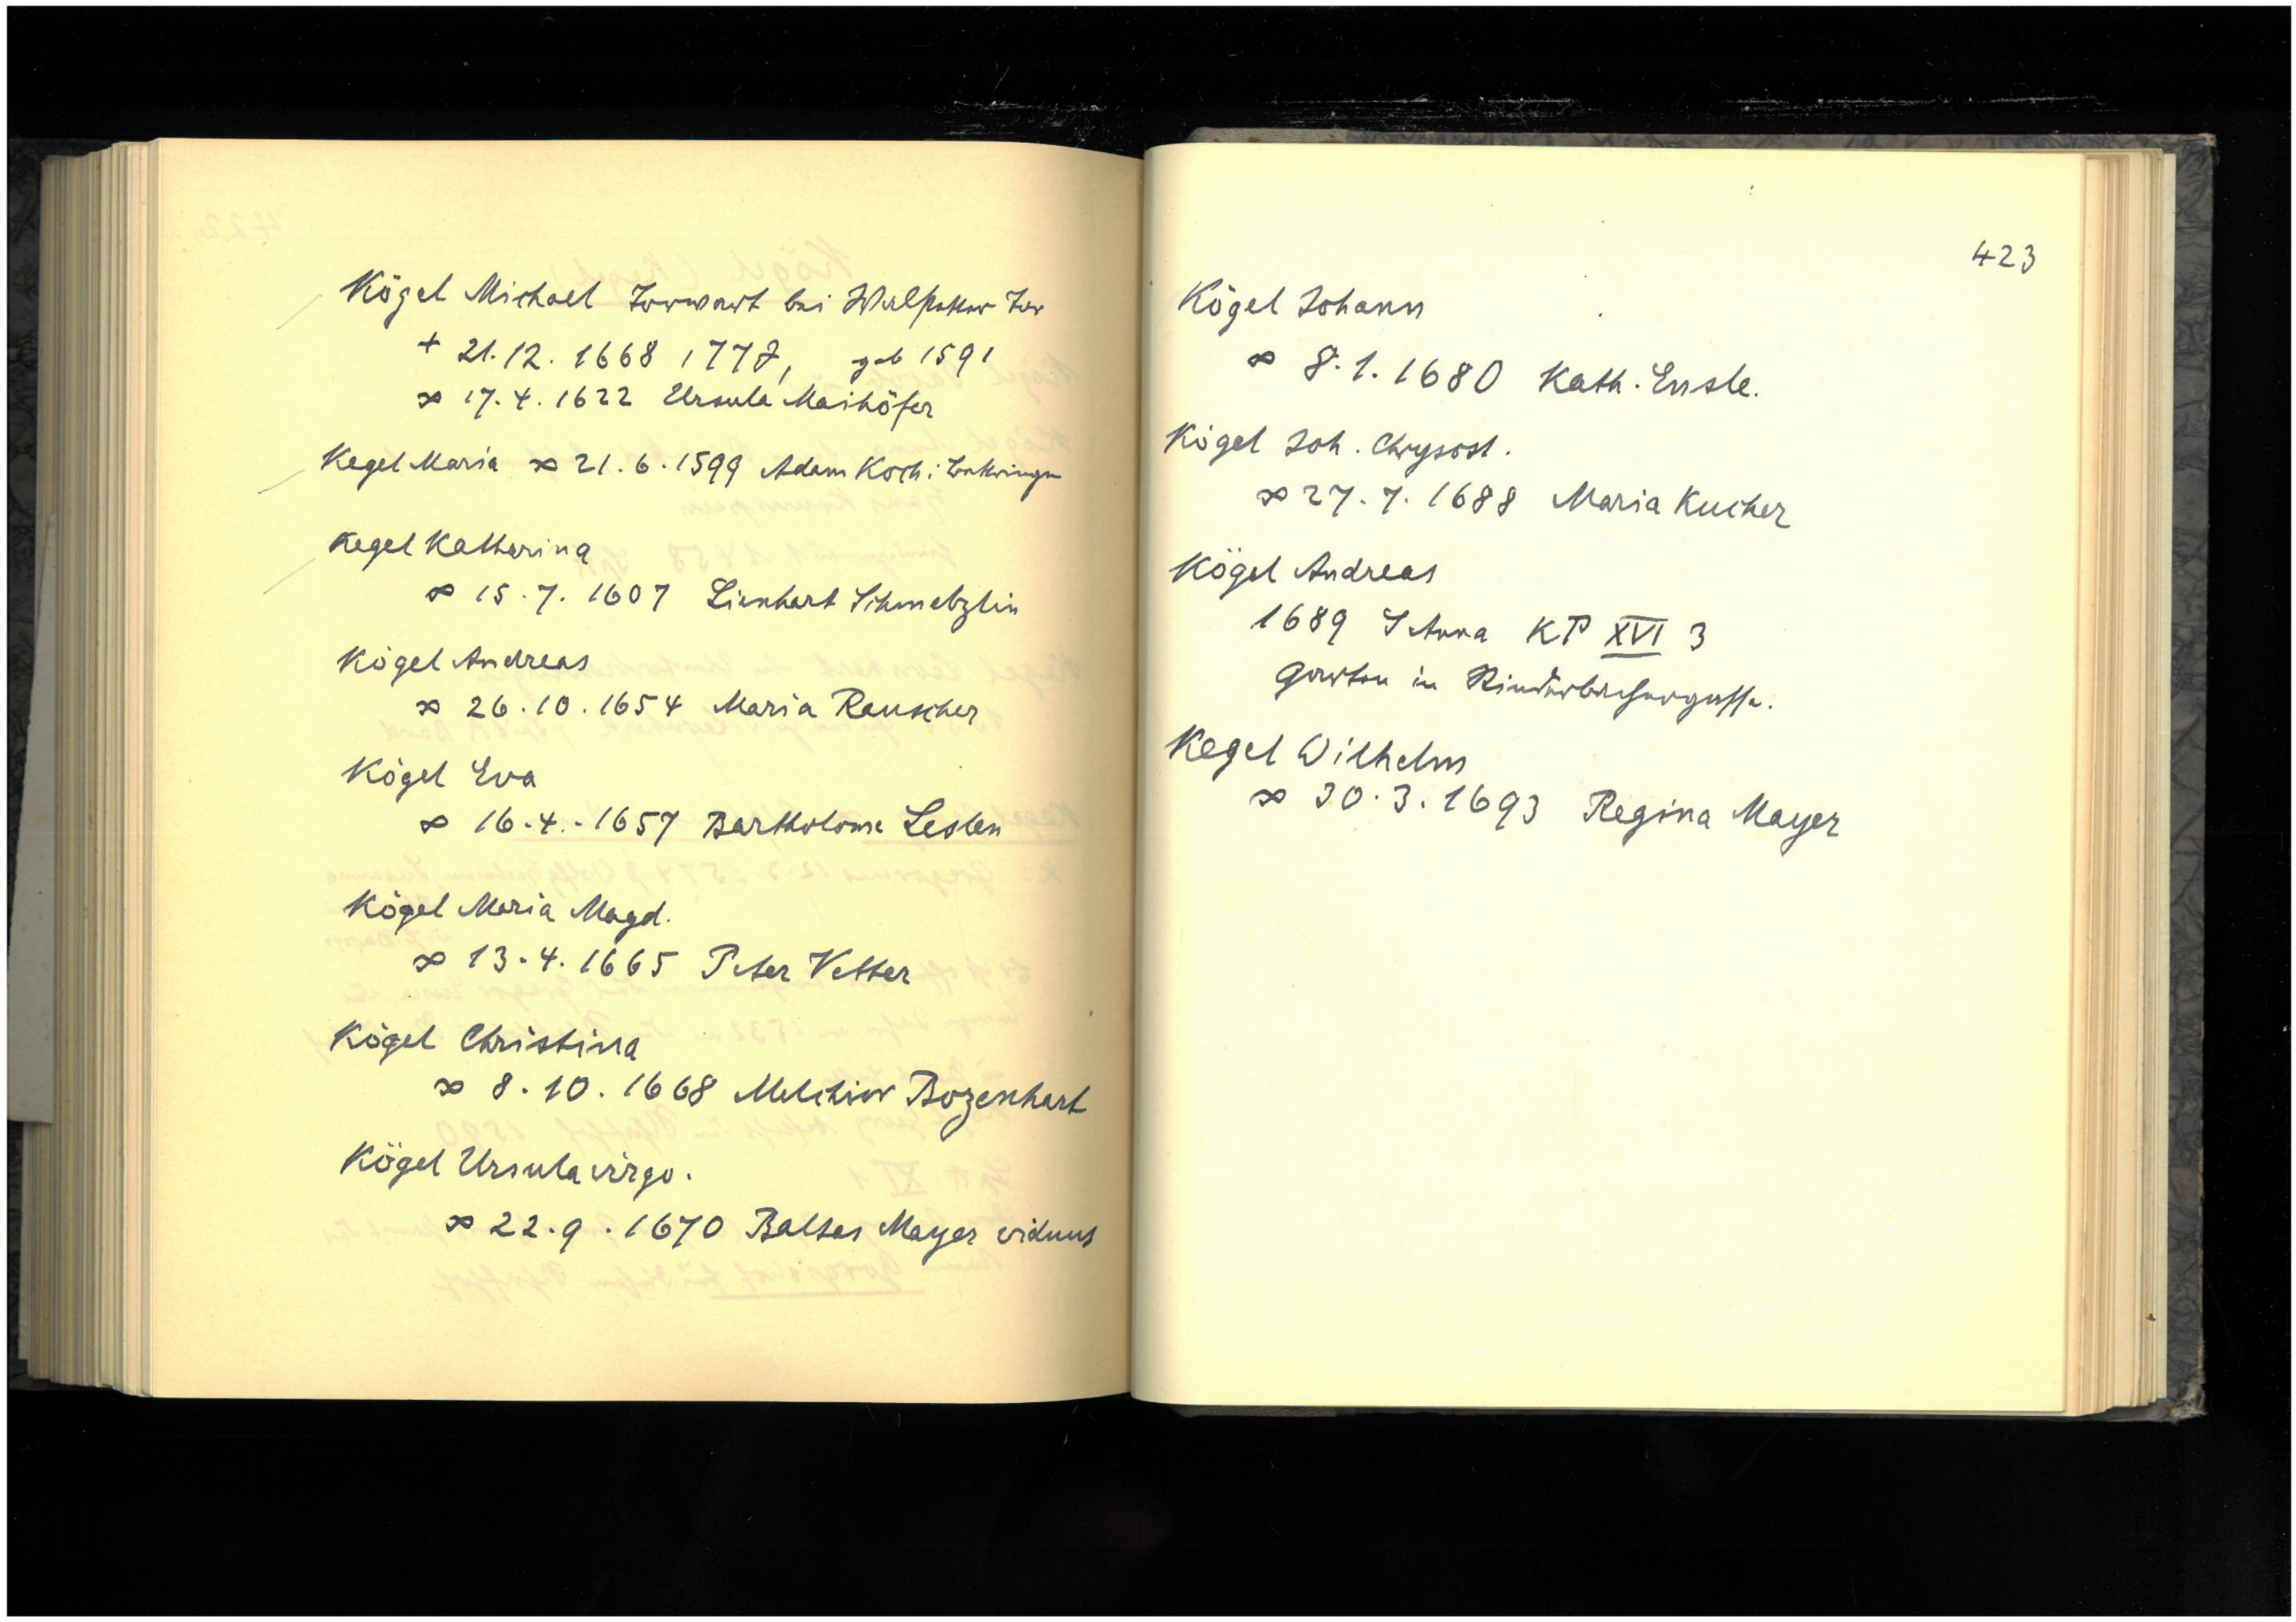 Kögel Michael Torwart bei Walpatter Tor
+ 21.12.1668, 77 J, geb 1591
∞ 17.4.1622 Ursula Maihöfer
Kegel Maria ∞ 21.6.1599 Adam Koch i
Kegel Katharina
∞ 15.7.1607 Lienhart Schmelzlin
Kögel Andreas
∞ 26.10.1654 Maria Rauscher
Kögel Eva
∞ 16.4.1657 Bartholome Leslen
Kögel Maria Magd.
∞ 13.4.1665 Peter Vetter
Kögel Christina
∞ 8.10.1668 Melchior Bozenhart
Kögel Ursula virgo.
∞ 22.9.1670 Baltas Mayer viduus
423
Kögel Johann
∞ 8.1.1680 Kath. Ensle.
Kögel Joh. Chrysost.
∞ 27.7.1688 Maria Kucher
Kögel Andreas
1689 S Anna KP XVI 3
Garten in Rinderbachergasse.
Kegel Wilhelm
∞ 30.3.1693 Regina Mayer